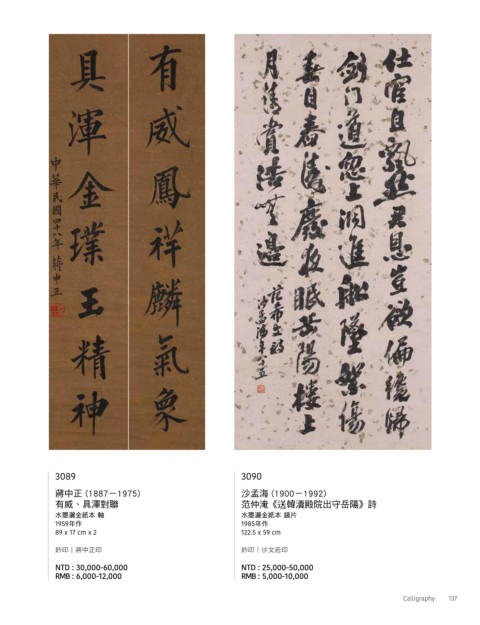 有威鳳祥麟氣象
具渾金璞玉精神
中華民國四十八年 蔣中正
仕宦自飄然君恩豈欲偏纔歸
劍門道忽上洞庭船墜絮傷
春目舂濤廢夜眠岳陽樓上
月清賞浩無邊
范希文詩
沙孟海年八十五
3089
蔣中正（1887－1975）
有威、具渾對聯
水墨灑金紙本 軸
1959年作
89 x 17 cm x 2
鈐印｜蔣中正印
NTD : 30,000-60,000
RMB : 6,000-12,000
3090
沙孟海（1900－1992）
范仲淹《送韓瀆殿院出守岳陽》詩
水墨灑金紙本 鏡片
1985年作
122.5 x 59 cm
鈐印｜沙文若印
NTD : 25,000-50,000
RMB : 5,000-10,000
Calligraphy 137